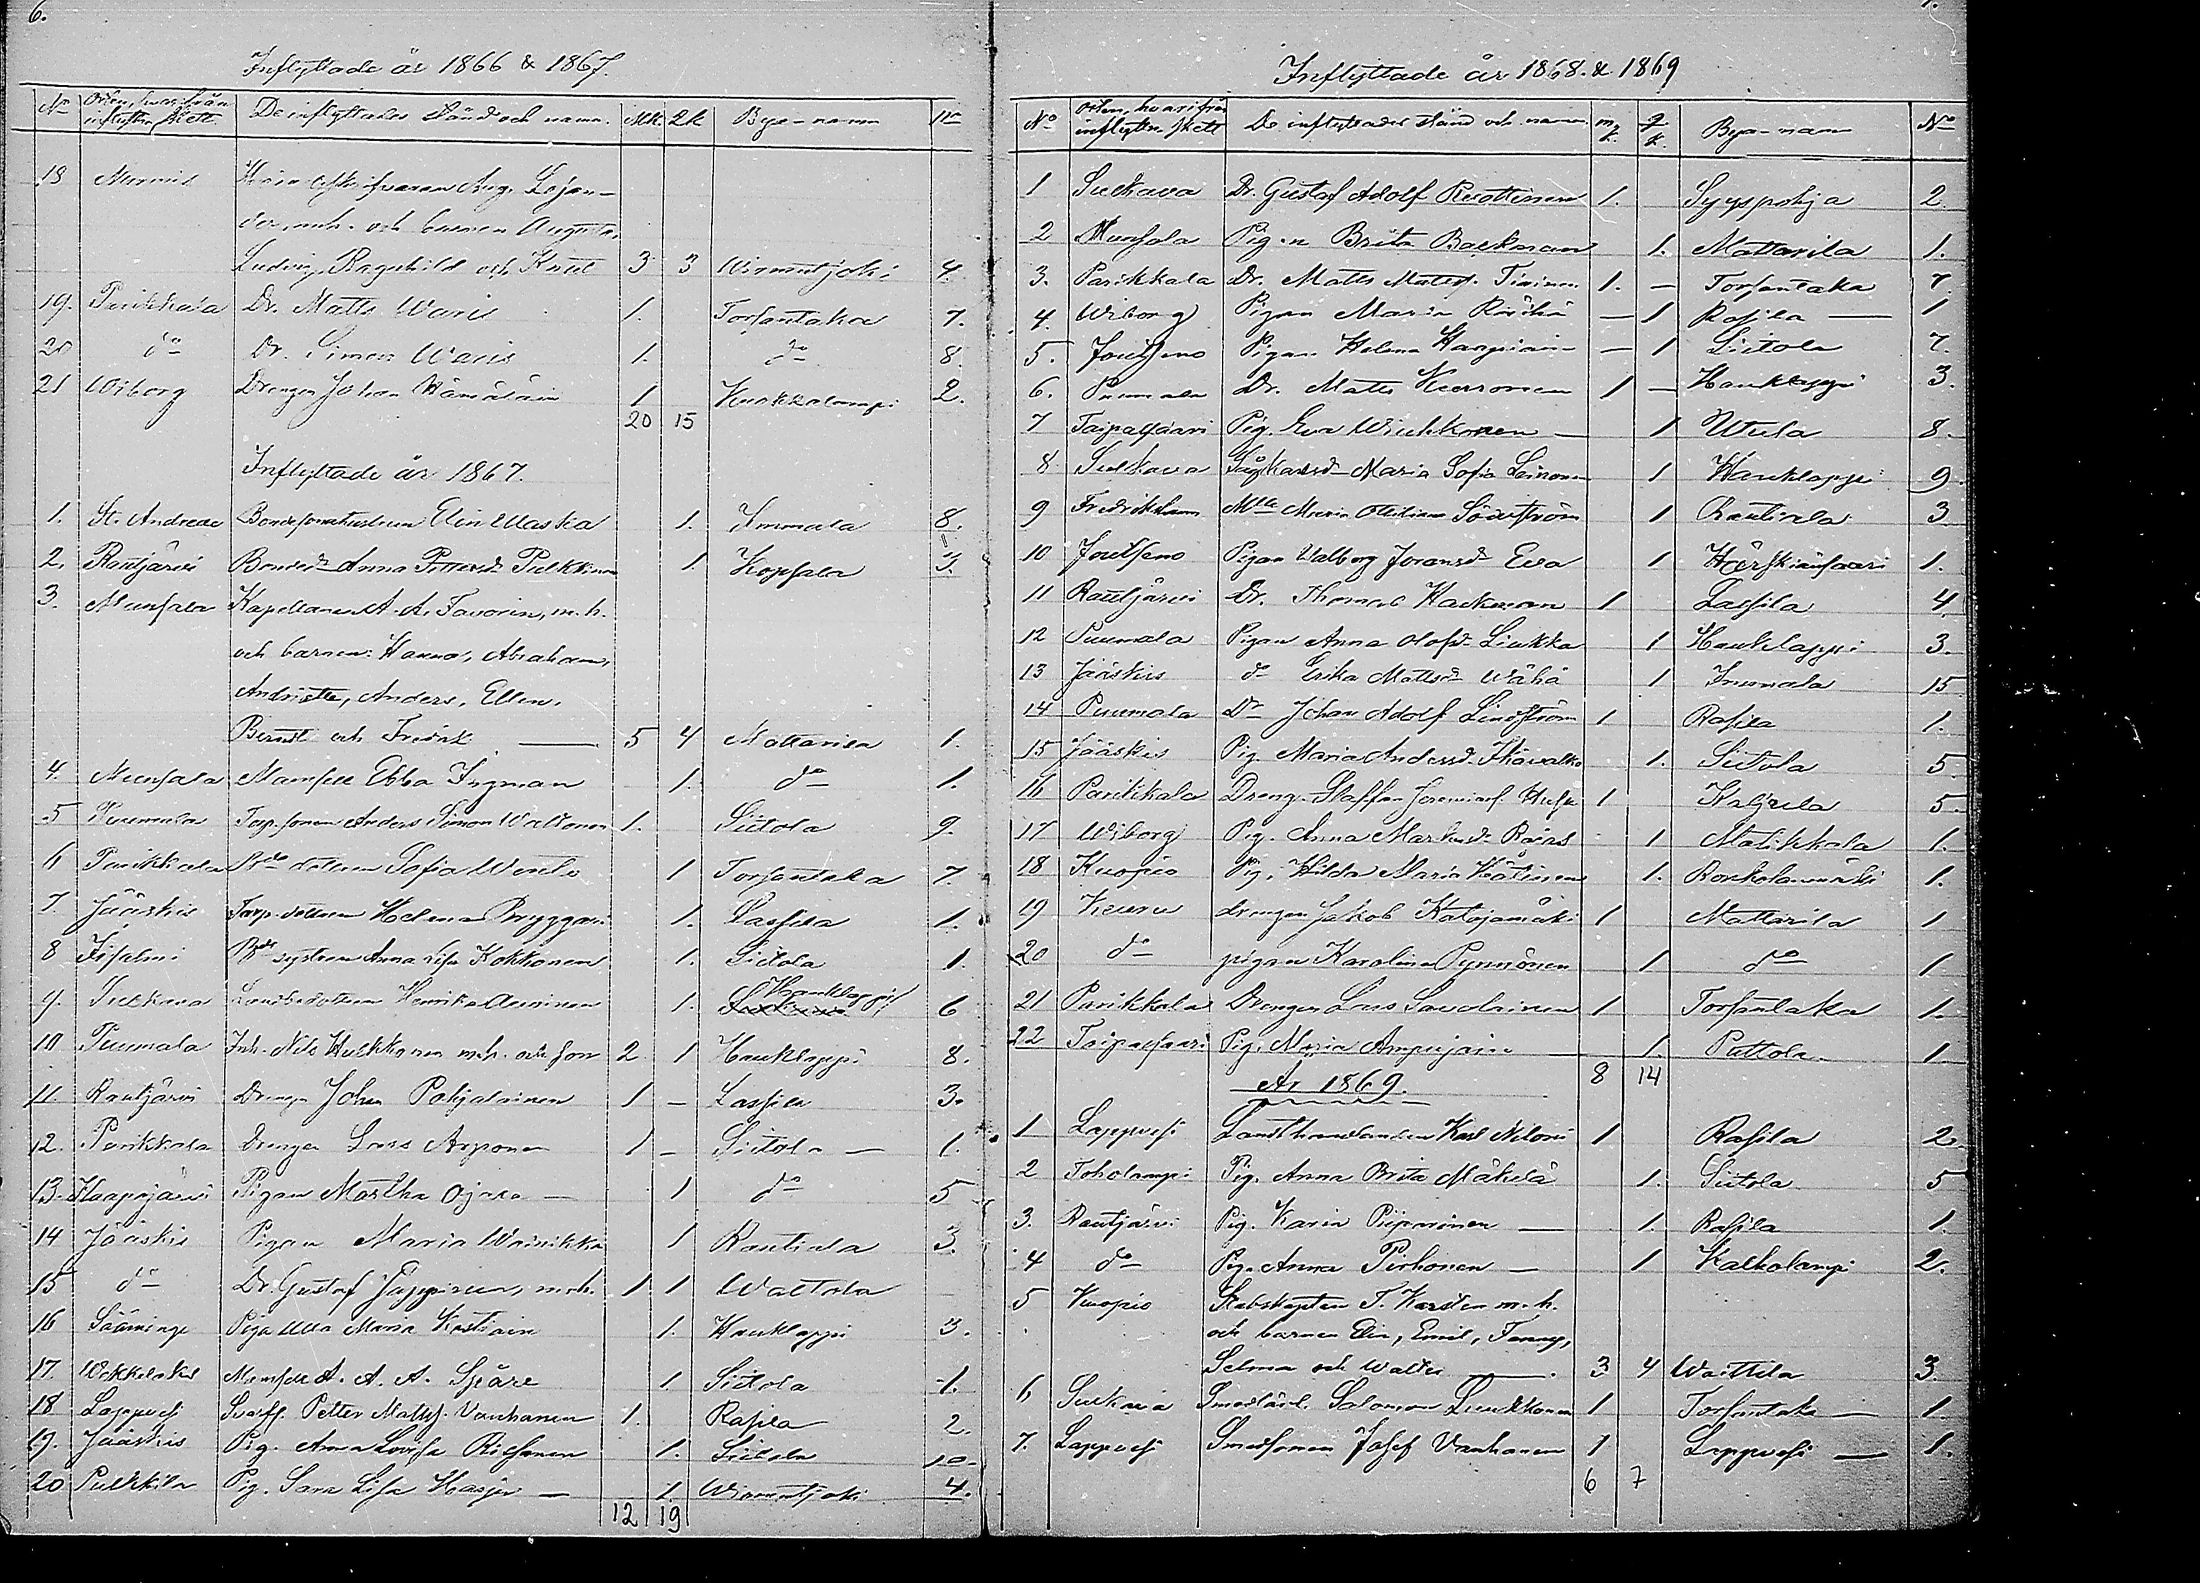 6.
Inflyttade år 1866 & 1867.
No Orten, hvarifrån inflyttn. skett. De inflyttades stånd och namn. Mk. Qk Bya-namn No
18 Nurmis Aug. Lojan-
der, m.h. och barnen Augusta,
Ludvig, Ragnhild och Knut 3 3 Wirmutjoki 4.
19. Parikkala Dr. Matts Waris 1. Torsantaka 7.
20 do Dr. Simon Waris 1. do 8.
21 Wiborg Drengen Johan Hämäläin 1 Kuokkalampi 2.
20 15
Inflyttade år 1867.
1. St. Andreae Elin Ulaska 1. Immala 8.
2. Rautjärvi Bonded. Anna Pettersd. Pulkkinen 1 Kopsala 3.
3. Munsala Kapellanen A. A. Favorin, m.h.
och barnen: Hanna, Abraham,
Andriette, Anders, Ellen,
Berndt och Fredrik 5 4 Mattarila 1.
4. Munsala Mamsell Ebba Ingman 1. do 1.
5 Puumala Torp.sonen Anders Simon Waltonen 1. Siitola 9.
6 Parikkala dottren Sofia 1 Torsantaka 7.
7. Jääskis Torp.dottren Helena Bryggari 1. Lassila 1.
8 Iisalmi systern Anna Lisa Kokkonen 1. Siitola 1.
9. Sulkava Henrika Auvinen 1. Hauklappi 6
10 Puumala Inh. Nils Hukkanen m.h. och son 2 1 Hauklappi 8.
11. Rautjärvi Drengen Johan Pohjalainen 1 – Lassila 3.
12. Parikkala Drengen Lars Arponen 1 – Siitola – 1.
13. Haapajärvi Pigan Martha Ojala – 1 do 5
14 Jääskis Pigan Maria Wainikka 1 Rautiala 3.
15 do Dr. Gustaf Jäppinen, m.h. 1 1 Waltola
16 Sääminge Piga Ulla Maria Kostiain 1. Hauklappi 3.
17. Wekkelaks Mamsell A. A. A. Spåre 1 Siitola 1.
18 Lappvesi Petter Mattss. Vanhanen 1. Rasila 2.
19. Jääskis Pig. Anna Lovisa Riesonen 1. Siitola 10.
20 Pulkkila Pig. Sara Lisa Harju – 1. Wirmutjoki 4.
12 19
7.
Inflyttade år 1868. & 1869
No Orten, hvarifrån inflyttn. skett De inflyttades stånd och namn m.k. q.k. Bya-namn No
1 Sulkava Dr. Gustaf Adolf Ruottinen 1. Syyspohja 2
2 Munsala Pigan Brita Backman 1. Mattarila 1.
3. Parikkala Dr. Matts Mattss. Tiainen 1. – Torsantaka 7.
4. Wiborg Pigan Maria Räihä – 1 Rasila – 1
5. Joutseno Pigan Helena Haapiain – – 1 Siitola 7.
6. Puumala Dr. Matts Kurronen 1 – Hauklappi 3.
7 Taipalsaari Pig. Eva Wiukkonen – 1 Utula 8.
8 Sulkava Maria Sofia Leinonen 1 Hauklappi 9.
9 Fredrikshamn Mlle Maria Söderström 1 Rautiala 3
10 Joutseno Pigan Valborg Joransd. Eva 1 Härskiänsaari 1.
11 Rautjärvi Dr. Thomas Hackman 1 Lassila 4
12 Puumala Pigan Anna Olofsd. Liukka 1 Hauklappi 3.
13 Jääskis do Erika Mattsd. Wähä 1 Immala 15
14 Puumala Dr. Johan Adolf Lindström 1 Rasila 1.
15 Jääskis Pig. Maria Andersd. 1. Siitola 5
16 Parikkala Dreng. Staffan Jeremiass. 1 Kaljula 5.
17 Wiborg Pig. Anna Räväs 1 Matikkala 1.
18 Kuopio Pig. Hilda Maria Hätinen 1. 1.
19 Keuru Drengen Jakob Katajamäki 1 Mattarila 1
20 do pigan Karolina Pynnönen 1 do 1
21 Parikkala Drengen Lars Savolainen 1 Torsantaka 1.
22 Taipalsaari Pig. Maria Ampujain – 1. Pattola 1
8 14
År 1869.
1 Lappvesi Landthandlanden Karl 1 Rasila 2.
2 Toholampi Pig. Anna Brita Mäkelä 1. Siitola 5
3. Rautjärvi Pig. Karin Piiparinen – 1. Rasila 1.
4 do Pig. Anna Pirhonen – 1 Kalkolampi 2.
5 Kuopio Stabskapten T. Karsten m.h.
och barnen Elin, Emil, Fanny,
Selma och Walter – 3 4 Waittila 3.
6 Sulkava Smedlärl. Salomon Luukkonen 1 Torsantaka – 1.
7. Lappvesi Smedsonen Josef Vanhanen 1 Lappvesi – 1.
6 7